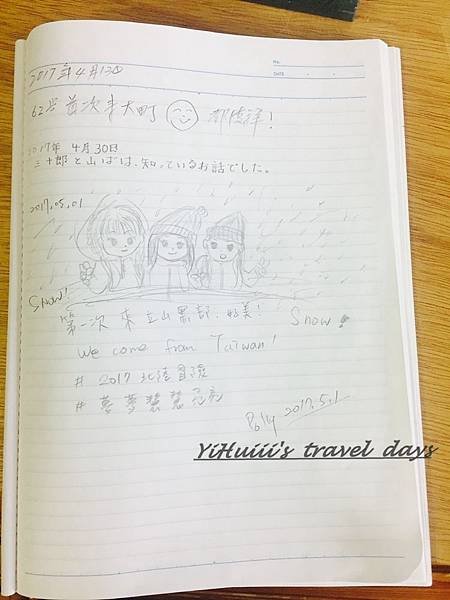 No.
DATE
2017年4月13日
62岁 首次来大町
2017年 4月30日
三十郎と山ばは、知っているお話でした。
2017.05.01
Snow!
第一次 來立山黑部,好美!
Snow!
We come from Taiwan!
# 2017 北陸冒險
# 夢夢慧慧亮亮
Polly 2017.5.1
YiHuiii's travel days